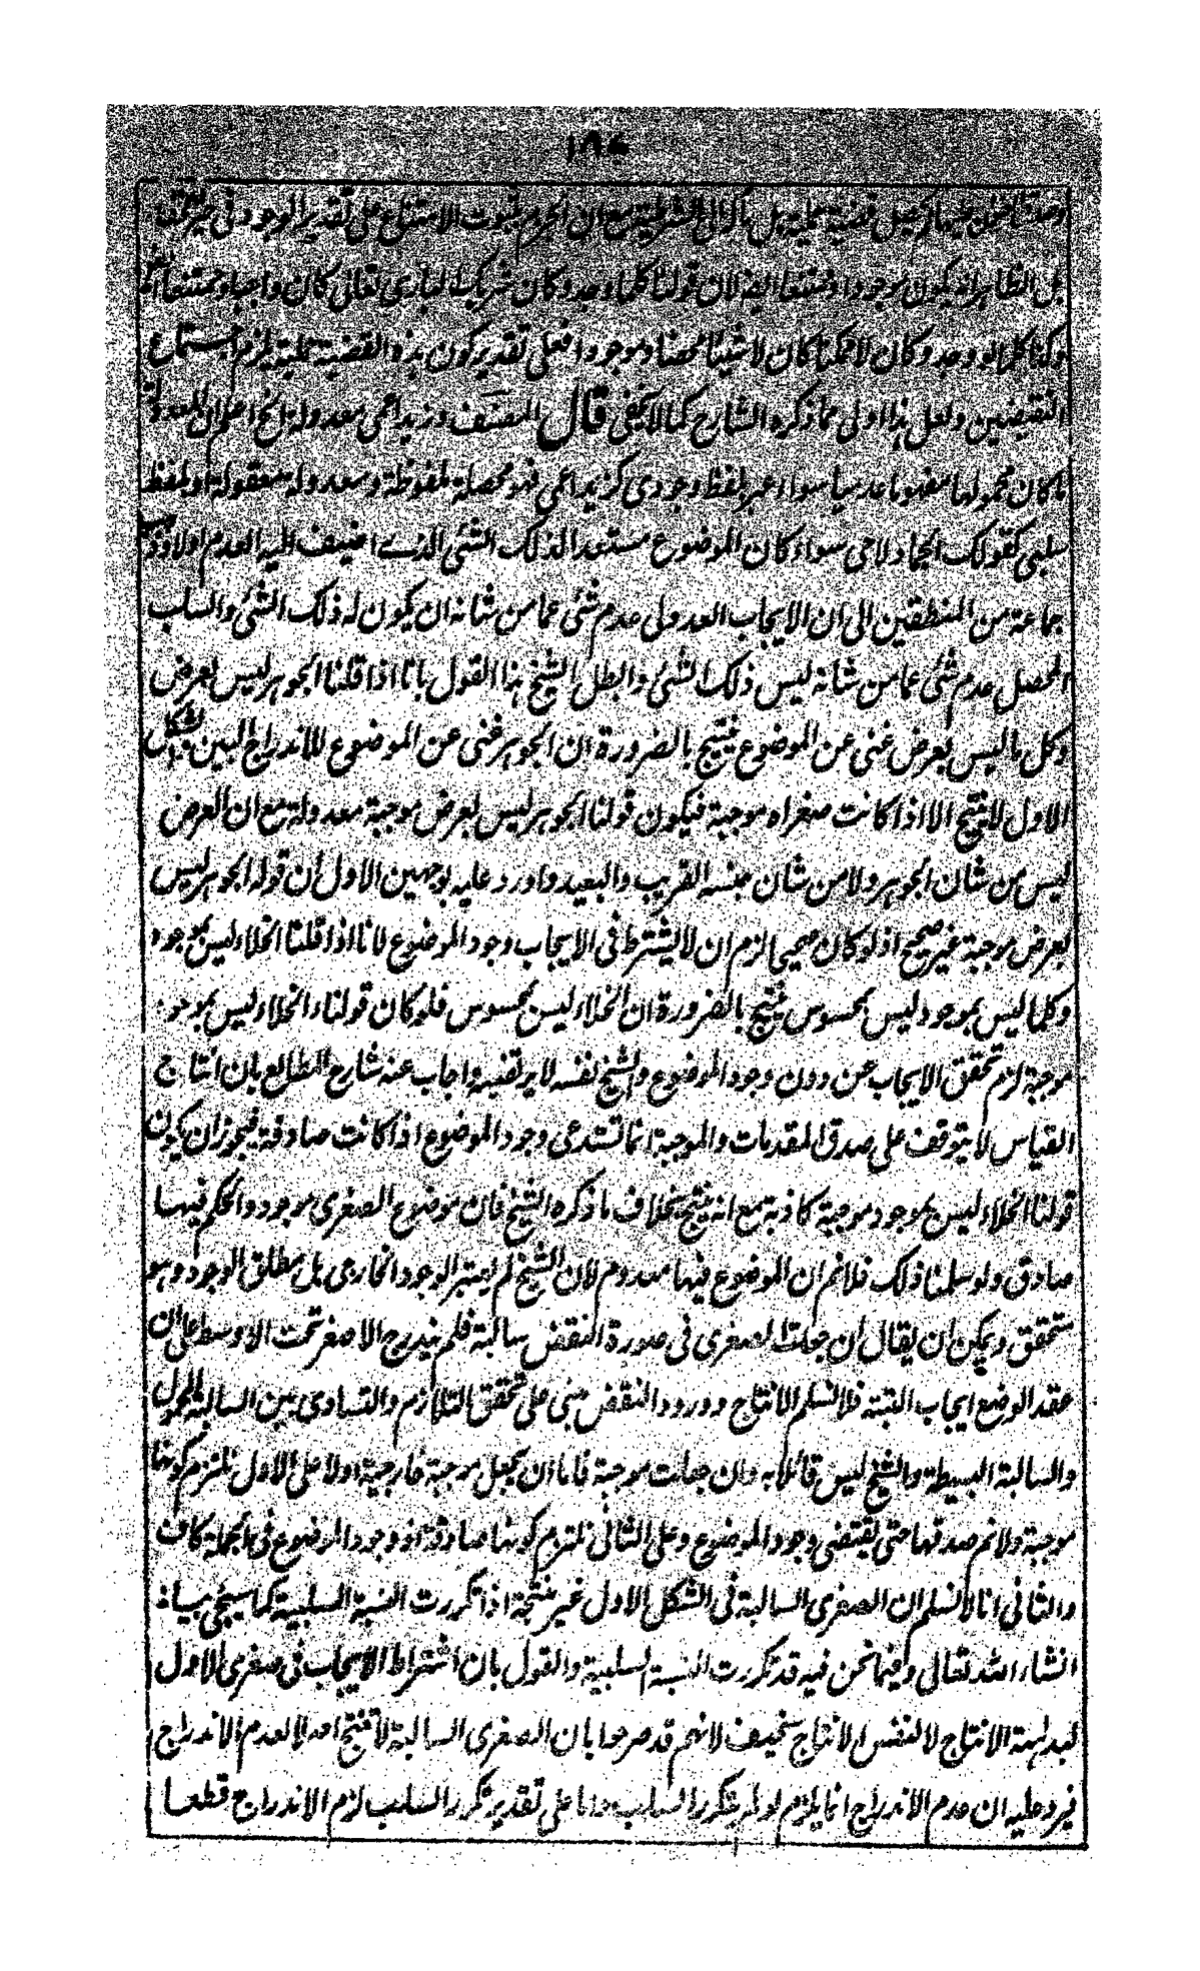 ١٨٤
بل الظاهر انه يكون موجودا وممتنعا ايضا لان قولنا كلما وجد وكان شريك الباري تعالى كان واجبا وممتنعا
وكذا كلما لو وجد وكان لا ممكنا كان لا شيئا محضا وموجودا فعلى تقدير كون هذه القضية حملية يلزم اجتماع
النقيضين ولعل هذا اولى مما ذكره الشارح كما لا يخفى قال المصنف وزيد اعمى معدولة الخ اعلم ان المعدولة
ما كان محمولها مفهوما عدميا سواء عبر بلفظ وجودي كزيد اعمى فهو محصلة ملفوظة ومعدولة معقولة او بلفظ
سلبي كقولك الجماد لاحي سواء كان الموضوع مستعدا لذلك الشئ الذے اضيف اليه العدم اولا وذهب
جماعة من المنطقيين الى ان الايجاب العدولى عدم شئ عما من شانه ان يكون له ذلك الشئ والسلب
المحصل عدم شئ عما من شانه ليس ذلك الشئ وابطل الشيخ هذا القول بانا اذا قلنا الجوهر ليس بعرض
وكل ما ليس بعرض غنى عن الموضوع ينتج بالضرورة ان الجوهر غنى عن الموضوع للاندراج البين والشكل
الاول لا ينتج الا اذا كانت صغراه موجبة فيكون قولنا الجوهر ليس بعرض موجبة معدولة مع ان العرض
ليس من شان الجوهر ولا من شان جنسه القريب والبعيد واورد عليه بوجهين الاول ان قوله الجوهر ليس
بعرض موجبة غير صحيح اذ لو كان صحيحا لزم ان لا يشترط فى الايجاب وجود الموضوع لانا اذا قلنا الخلاء ليس بموجود
وكلما ليس بموجود ليس بمحسوس ينتج بالضرورة ان الخلاء ليس بمحسوس فلو كان قولنا الخلاء ليس بموجود
موجبة لزم تحقق الايجاب من دون وجود الموضوع والشيخ نفسه لا يرتضيه واجاب عنه شارح المطالع بان انتاج
القياس لا يتوقف على صدق المقدمات والموجبة انما تستدعى وجود الموضوع اذا كانت صادقة فيجوز ان يكون
قولنا الخلاء ليس بموجود موجبة كاذبة مع انه ينتج بخلاف ما ذكره الشيخ فان موضوع الصغرى موجود والحكم فيها
صادق ولو سلمنا ذلك فلا نم ان الموضوع فيها معدوم لان الشيخ لم يعتبر الوجود الخارجى بل مطلق الوجود وهو
متحقق ويمكن ان يقال ان جعلت الصغرى فى صورة النقض سالبة فلم يندرج الاصغر تحت الاوسط على ان
عقد الوضع ايجاب البتة فلا نسلم الانتاج وورود النقض مبنى على تحقق التلازم والتساوى بين السالبة المحمول
والسالبة البسيطة والشيخ ليس قائلا به وان جعلت موجبة فاما ان يجعل موجبة خارجية اولا على الاول نلتزم كونها
موجبة ولا نم صدقها حتى يقتضى وجود الموضوع وعلى الثانى نلتزم كونها صادقة او وجود الموضوع فى الجملة كاف
والثانى انا لا نسلم ان الصغرى السالبة فى الشكل الاول غير منتجة اذا تكررت النسبة السلبية كما سيجئ بيانه
انشاء الله تعالى وفيما نحن فيه قد تكررت النسبة السلبية والقول بان اشتراط الايجاب فى صغرى الاول
لبداهة الانتاج لا لنفس الانتاج سخيف لانهم قد صرحوا بان الصغرى السالبة لا تنتج اصلا لعدم الاندراج
فيرد عليه ان عدم الاندراج انما يلزم لو لم يتكرر السلب واما على تقدير تكرر السلب لزم الاندراج قطعا